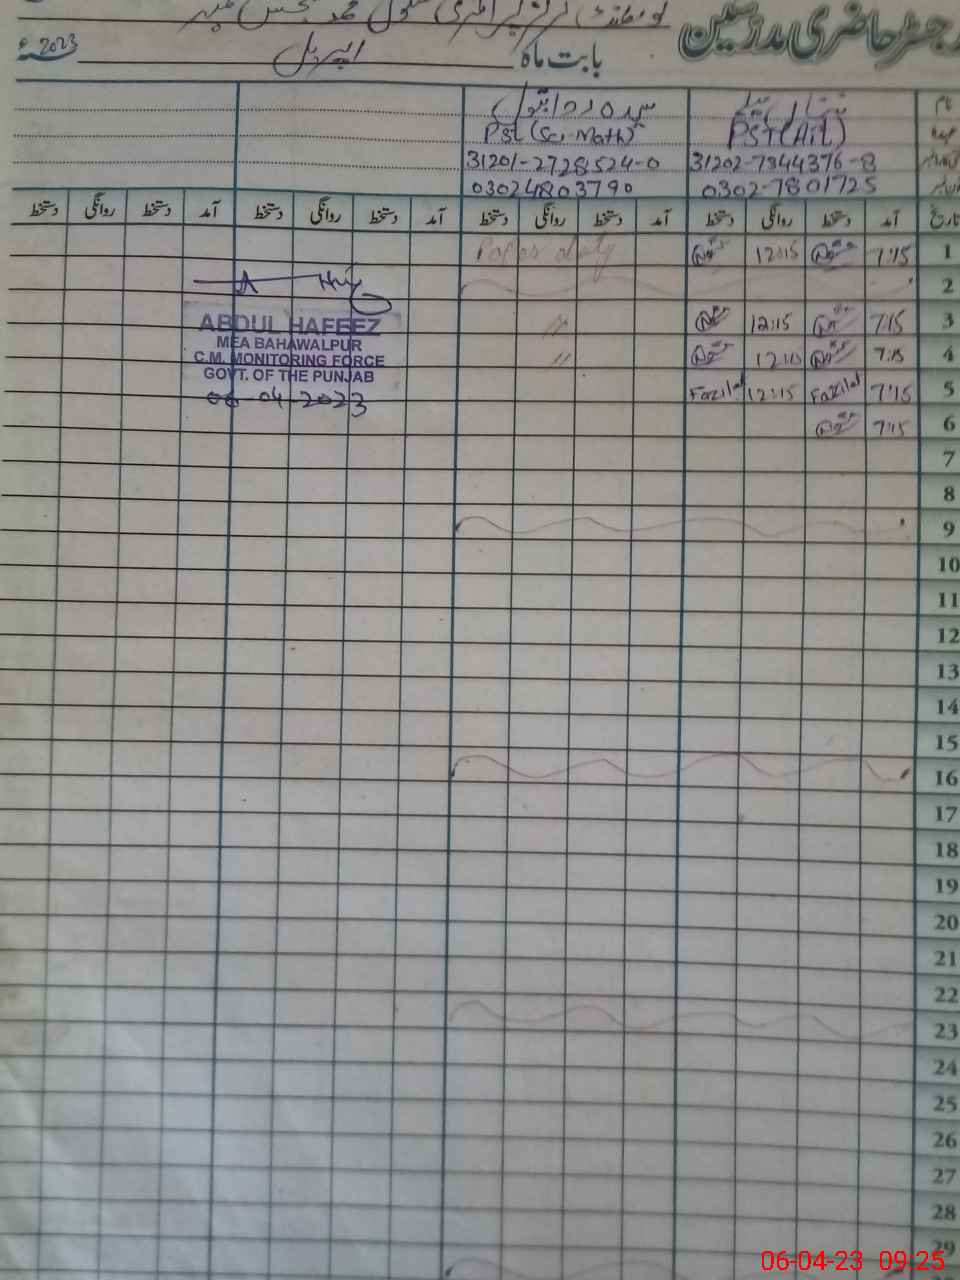 رجسٹر حاضری مدرسین
گورنمنٹ گرلز پرائمری سکول محمد بخش
بابت ماہ اپریل 2023ء
نام
عہدہ PST (Art) Pst (Sci-Math)
31202-7844376-8 31201-2728524-0
0302-7801725 03024803790
تاریخ آمد دستخط روانگی دستخط آمد دستخط روانگی دستخط آمد دستخط روانگی دستخط آمد دستخط روانگی دستخط
1 7:15 12:15 Paper duty
2
3 7:15 12:15 //
4 7:15 12:15 //
5 7:15 Fazilat 12:15 Fazilat
6 7:15
7
8
9
10
11
12
13
14
15
16
17
18
19
20
21
22
23
24
25
26
27
28
29
ABDUL HAFEEZ
MEA BAHAWALPUR
C.M. MONITORING FORCE
GOVT. OF THE PUNJAB
06-04-2023
06-04-23 09:25